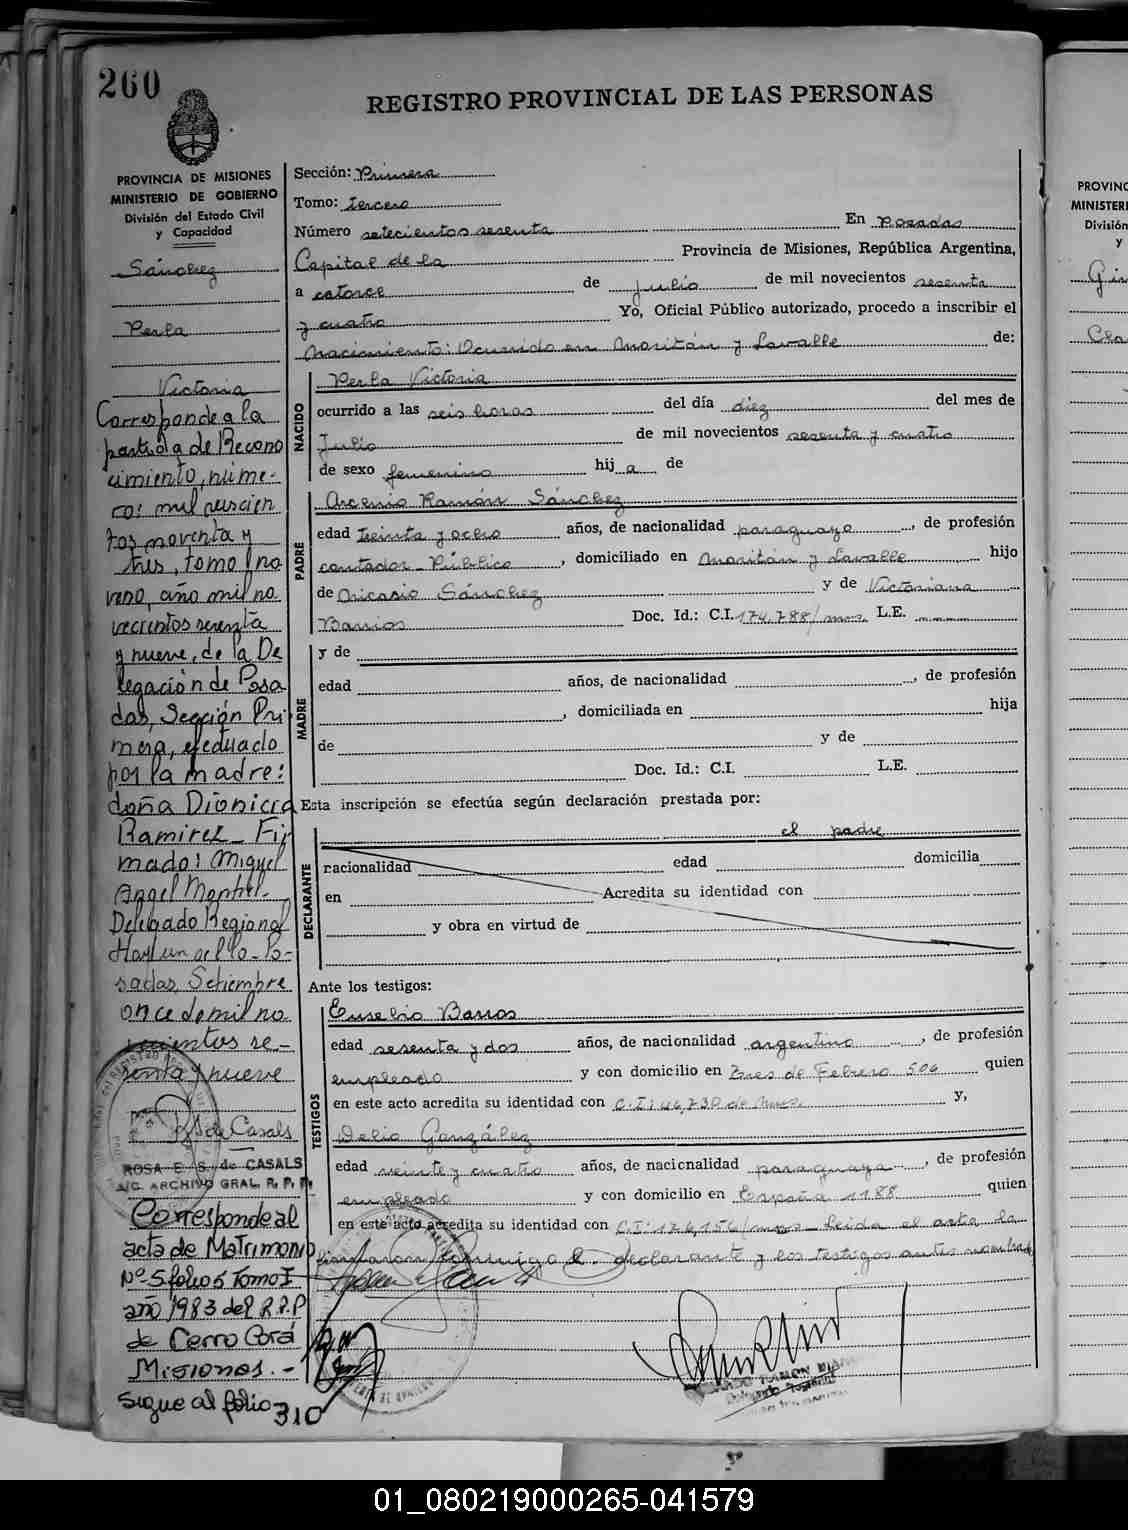 260
REGISTRO PROVINCIAL DE LAS PERSONAS
PROVINCIA DE MISIONES
MINISTERIO DE GOBIERNO
División del Estado Civil
y Capacidad
Sánchez
Perla
Victoria
Corresponde a la
partida de Recono
cimiento, núme-
ro: mil
tos noventa y
tres, tomo no
veno, año mil no
vecientos sesenta
y nueve, de la De
legación de Posa
das, Sección Pri
mera, efectuado
por la madre:
doña Dionicia
Ramirez_ Fir
mado: Miguel
Angel Montiel-
Delegado Regional
Hay un sello- Po-
sadas, Setiembre
once de mil no
vecientos se-
senta y nueve
de Casals
ROSA E. S. de CASALS
A/C. ARCHIVO GRAL. R. P. P.
Corresponde al
acta de Matrimonio
Nº 5 folio 5 Tomo I
año 1983 del R.P.P
de Cerro Corá
Misiones.-
Sigue al folio 310
Sección: Primera
Tomo: tercero
Número setecientos sesenta En Posadas
Capital de la Provincia de Misiones, República Argentina,
a catorce de Julio de mil novecientos sesenta
y cuatro Yo, Oficial Público autorizado, procedo a inscribir el
Nacimiento: Ocurrido en Moritán y Lavalle de:
NACIDO
Perla Victoria
ocurrido a las seis horas del día diez del mes de
Julio de mil novecientos sesenta y cuatro
de sexo femenino hij a de
PADRE
Arcenio Ramón Sánchez
edad treinta y ocho años, de nacionalidad paraguayo, de profesión
contador Público, domiciliado en Moritán y Lavalle hijo
de Nicasio Sánchez y de Victoriana
Barrios Doc. Id.: C.I. 174.788/mnes. L.E.
MADRE
y de
edad años, de nacionalidad, de profesión
, domiciliada en hija
de y de
Doc. Id.: C.I. L.E.
Esta inscripción se efectúa según declaración prestada por:
el padre
DECLARANTE
nacionalidad edad domicilia
en Acredita su identidad con
y obra en virtud de
Ante los testigos:
TESTIGOS
Eusebio Barros
edad sesenta y dos años, de nacionalidad argentino, de profesión
empleado y con domicilio en Tres de Febrero 506 quien
en este acto acredita su identidad con C.I: 46,730 de Mnes. y,
Delio González
edad veinte y cuatro años, de nacionalidad paraguaya, de profesión
empleado y con domicilio en España 1188 quien
en este acto acredita su identidad con C.I: 176,156/mnes_ Leida el acta la
firmaron conmigo el declarante y los testigos antes nombrad
RAMON
Delegado
PROVINC
MINISTERI
División
y
01_080219000265-041579